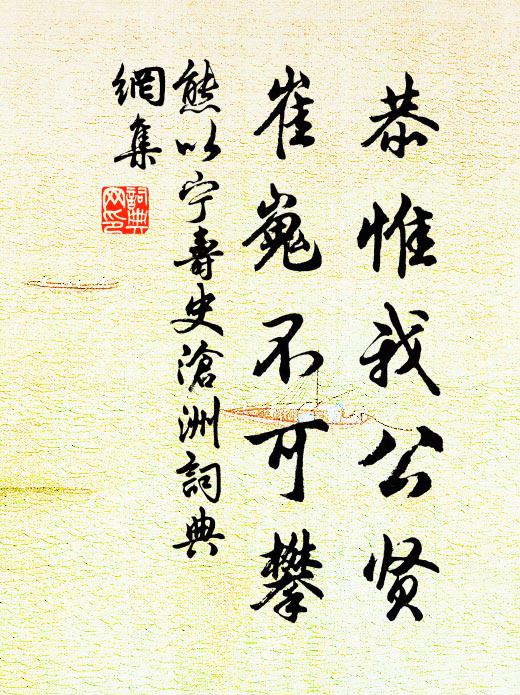 恭惟我公贤
崔嵬不可攀
熊以宁寿史沧洲詞典
網集
詞典
网印